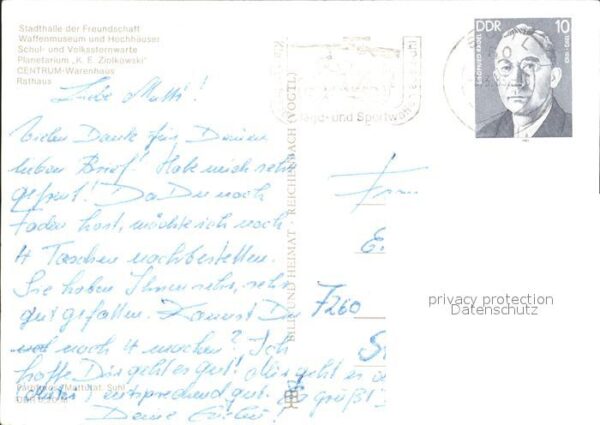 Stadthalle der Freundschaft
Waffenmuseum und Hochhäuser
Schul- und Volkssternwarte
Planetarium „K. E. Ziolkowski"
CENTRUM-Warenhaus
Rathaus
Liebe Matti!
Vielen Dank für Deinen
lieben Brief! Habe mich sehr
gefreut! Da Du noch
Faden hast, möchte ich noch
4 Taschen nachbestellen.
Sie haben Ihnen sehr, sehr
gut gefallen. Kannst Du
noch 4 machen? Ich
hoffe Dir geht es gut! Mir geht es
entsprechend gut. Es grüßt
Deine
BILD UND HEIMAT · REICHENBACH (VOGTL)
Jagd- und Sportwaffen
DDR 10
Frau
E.
7260
privacy protection
Datenschutz